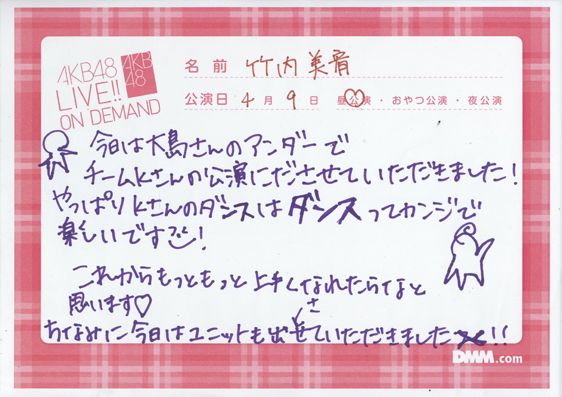 AKB48
LIVE!!
ON DEMAND
AKB
48
名前 竹内美宥
公演日 4月9日 昼公演・おやつ公演・夜公演
今日は大島さんのアンダーで
チームKさんの公演にださせていただきました!
やっぱりKさんのダンスはダンスってカンジで
楽しいです!
これからもっともっと上手くなれたらなと
思います♡
ちなみに今日はユニットも出させていただきました!!
DMM.com